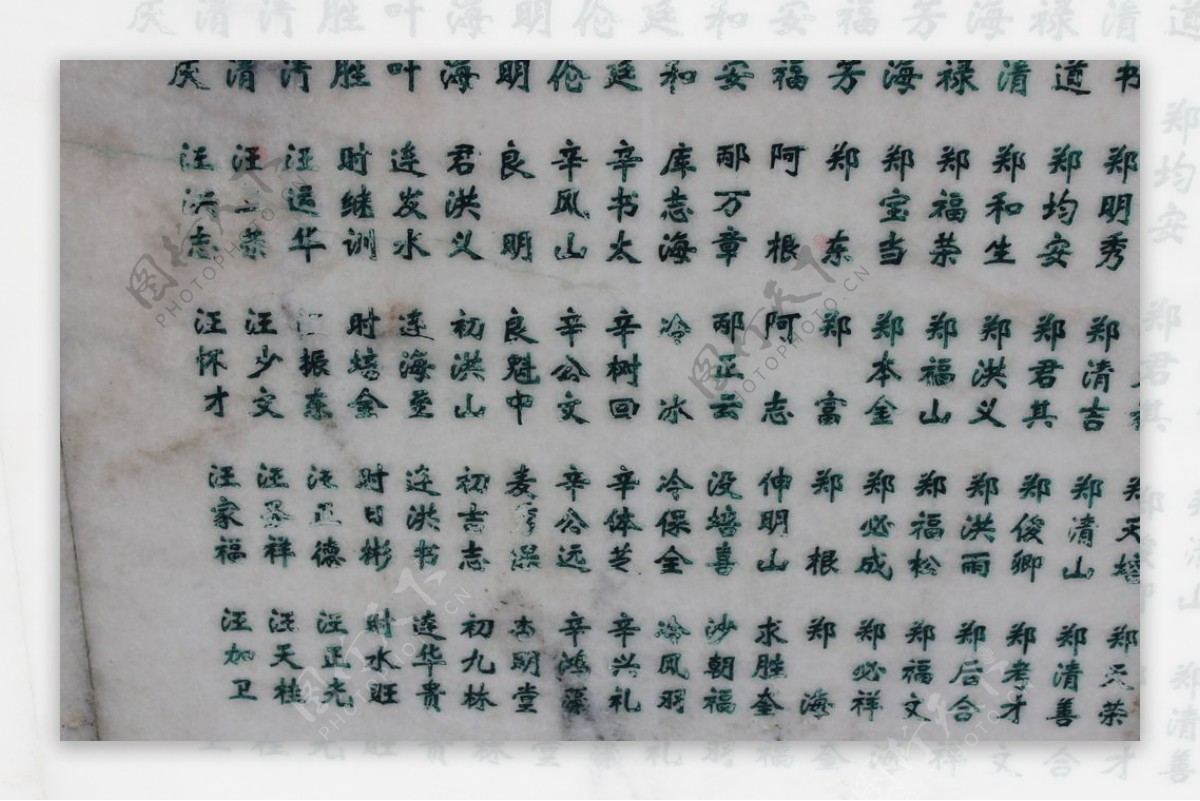 庆 清 汸 胜 叶 海 明 伦 廷 和 安 福 芳 海 禄 清 道 书
汪洪志 汪荣 汪运华 时继训 连发水 君洪义 良明 辛风山 辛书太 库志海 邴万章 阿根 郑东 郑宝当 郑福荣 郑和生 郑均安 郑明秀
汪怀才 汪少文 汪振东 时培金 连海奎 初洪山 良魁中 辛公文 辛树回 冷冰 邴正云 阿志 郑富 郑本金 郑福山 郑洪义 郑君其 郑清吉
汪家福 汪圣祥 汪正德 时日彬 连洪书 初吉志 麦 辛公远 辛体芝 冷保全 没培喜 仲明山 郑根 郑必成 郑福松 郑洪雨 郑俊卿 郑清山 郑天培
汪加卫 汪天桂 汪正光 时水旺 连华贵 初九林 杰明堂 辛鸿藻 辛兴礼 冷风羽 沙朝福 求胜奎 郑海 郑必祥 郑福文 郑后合 郑考才 郑清善 郑天荣
图行天下 PHOTOPHOTO.CN